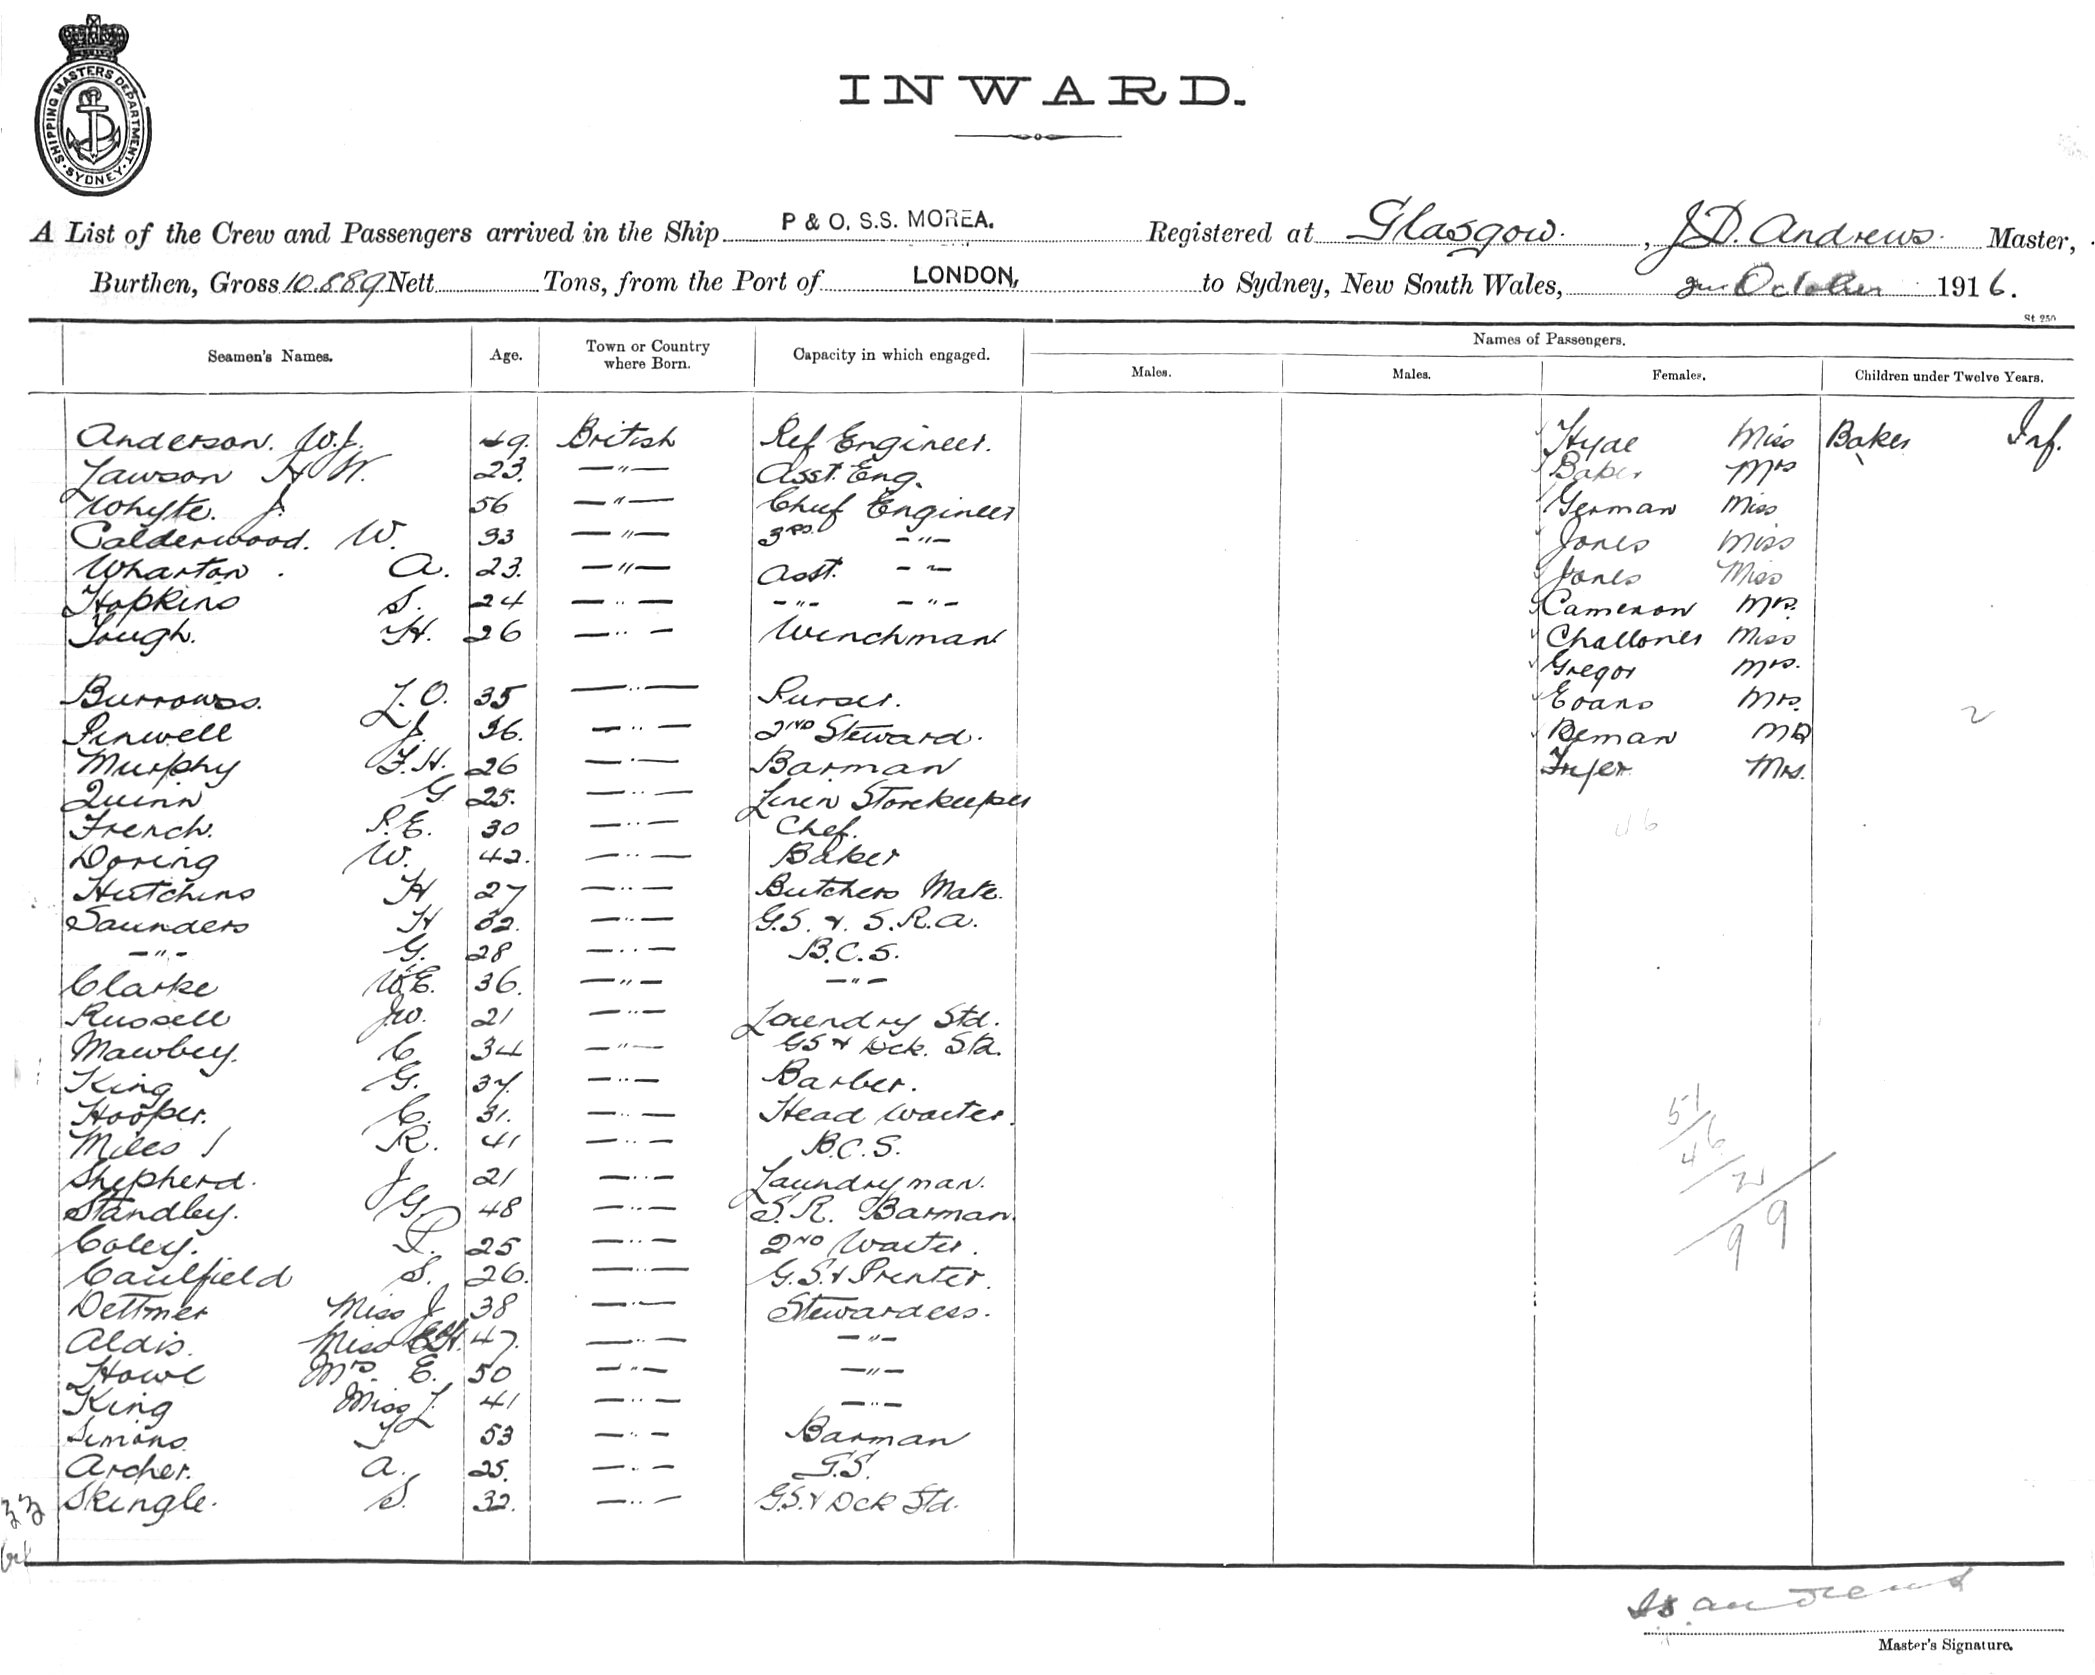 SHIPPING MASTERS DEPARTMENT · SYDNEY ·
INWARD.
A List of the Crew and Passengers arrived in the Ship P & O. S.S. MOREA. Registered at Glasgow. , J.D. Andrews. Master,
Burthen, Gross 10.889 Nett Tons, from the Port of LONDON, to Sydney, New South Wales, October 1916.
St 250
Seamen's Names. Age. Town or Country where Born. Capacity in which engaged. Names of Passengers.
Males. Males. Females. Children under Twelve Years.
Anderson. W.J. 49. British Ref Engineer. Hyde Miss Baker Inf.
Lawson H W. 23. —"— Asst. Eng. Baker Mrs
Whyte. J. 56 —"— Chief Engineer German Miss
Calderwood. W. 33 —"— 3RD. -"- Jones Miss
Wharton. A. 23. —"— Asst. -"- Jones Miss
Hopkins S. 24 —"— -"- -"- Cameron Mrs.
Tough. H. 26 —"— Winchman Challoner Miss
Gregor Mrs.
Burrows. L.O. 35 —"— Purser. Evans Mrs.
Pinwell J. 36. —"— 2ND Steward. Beman
Murphy F.H. 26 —"— Barman Fryer Mrs.
Quinn G 25. —"— Linen Storekeeper
French. P.E. 30 —"— Chef. 46
Doring W. 42. —"— Baker
Hutchins H 27 —"— Butchers Mate.
Saunders H 32. —"— G.S. & S.R.A.
-"- G. 28 —"— B.C.S.
Clarke W.E. 36. —"— -"-
Russell J.W. 21 —"— Laundry Std.
Mawbey. C 34 —"— GS & Dck. Std.
King G. 37. —"— Barber.
Hooper. C. 31. —"— Head Waiter.
Miles R. 41 —"— B.C.S.
Shepherd. J 21 —"— Laundryman.
Standley. G 48 —"— S.R. Barman.
Coley. P. 25 —"— 2ND Waiter.
Caulfield S. 26. —"— G.S. & Printer.
Dettmer Miss J 38 —"— Stewardess.
Aldis. Miss 47. —"— -"-
Howe Mrs. E. 50 —"— -"-
King Miss L 41 —"— -"-
Simons T. 53 —"— Barman
Archer. A. 25. —"— G.S.
Skingle. S. 32. —"— G.S. & Dck Std.
2
51
46
2
99
33
Master's Signature.